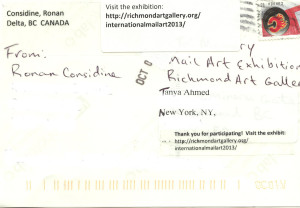 Considine, Ronan
Delta, BC CANADA
Visit the exhibition:
http://richmondartgallery.org/
internationalmailart2013/
From:
Ronan Considine
OCT
ry
Mail Art Exhibition
Richmond Art Galle
Tanya Ahmed
New York, NY,
Thank you for participating! Visit the exhibit:
http://richmondartgallery.org/
internationalmailart2013/